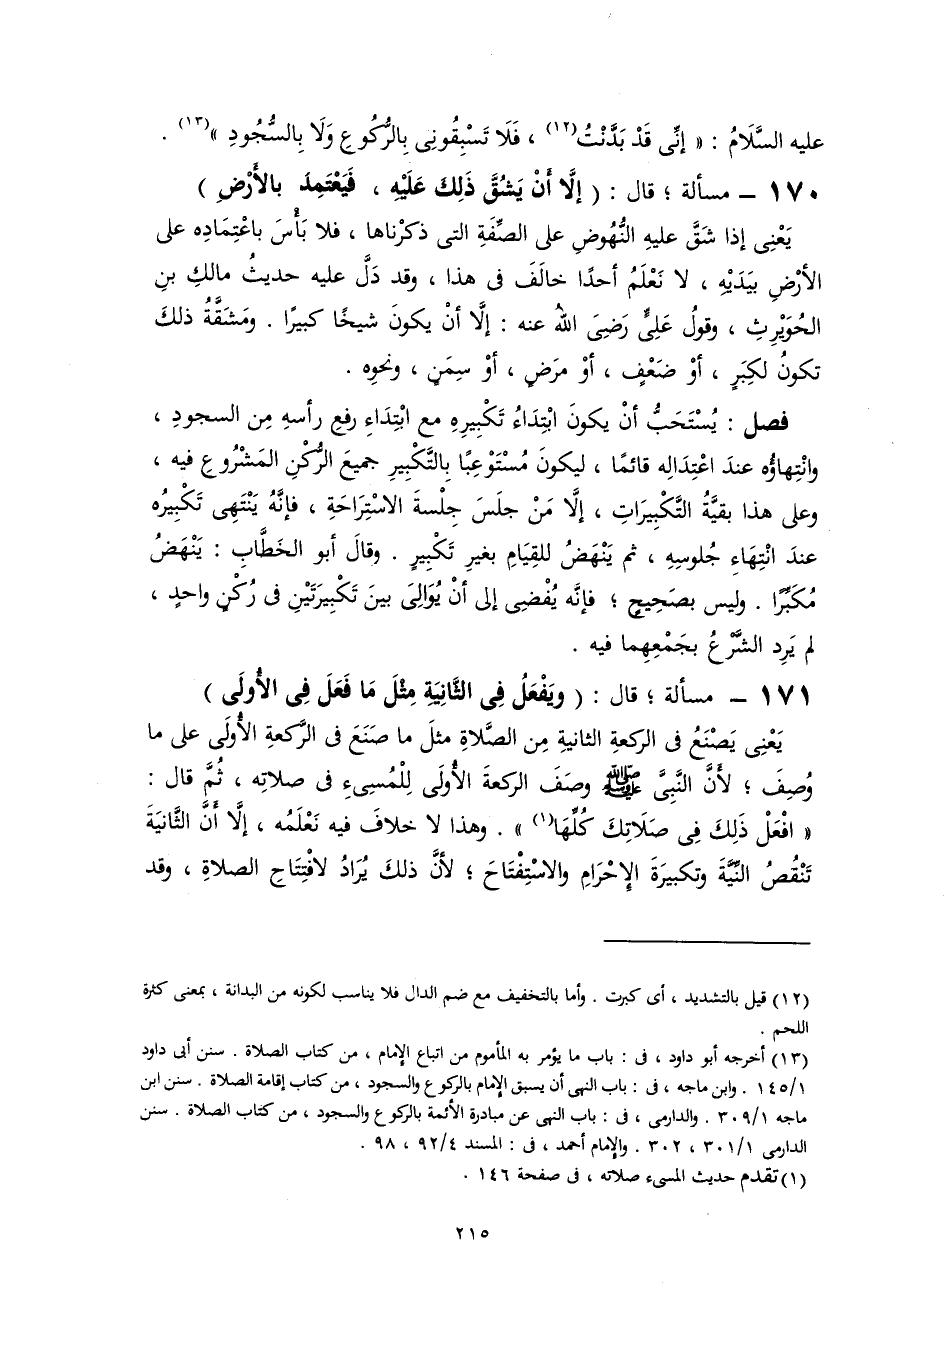 عليه السَّلَامُ : « إنِّى قَدْ بَدَّنْتُ(١٢) ، فَلَا تَسْبِقُونِى بِالرُّكُوعِ وَلَا بِالسُّجُودِ »(١٣) .
١٧٠ ــ مسألة ؛ قال : ( إلَّا أَنْ يَشُقَّ ذَلِكَ عَلَيْهِ ، فَيَعْتَمِدَ بالأَرْضِ )
يَعْنِى إذا شَقَّ عليهِ النُّهُوضِ على الصِّفَةِ التى ذكرْناها ، فلا بَأْسَ باعْتِمادِه على
الأرْضِ بيَدَيْهِ ، لا نَعْلَمُ أحدًا خالَفَ فى هذا ، وقد دَلَّ عليه حديثُ مالكِ بنِ
الحُوَيْرِثِ ، وقولُ عَلِىٍّ رَضِىَ اللهُ عنه : إلَّا أنْ يكونَ شيخًا كبيرًا . ومَشَقَّةُ ذلكَ
تكونُ لكِبَرٍ ، أوْ ضَعْفٍ ، أوْ مرَضٍ ، أوْ سِمَنٍ ، ونحوِه .
فصل : يُسْتَحَبُّ أنْ يكونَ ابْتِدَاءُ تَكْبِيرِهِ مع ابْتِدَاءِ رفعِ رأسهِ مِن السجودِ ،
وانْتِهاؤُه عندَ اعْتِدالِه قائمًا ، ليكونَ مُسْتَوْعِبًا بالتَّكْبِيرِ جميعَ الرُّكْنِ المَشْرُوعِ فيه ،
وعلى هذا بقيَّةُ التَّكْبِيرَاتِ ، إلَّا مَنْ جلَسَ جِلْسةَ الاسْتِرَاحَةِ ، فإنَّهُ يَنْتَهِى تَكْبِيرُه
عندَ انْتِهَاءِ جُلوسِهِ ، ثم يَنْهَضُ للقِيَامِ بغيرِ تَكْبِيرٍ . وقالَ أبو الخَطَّابِ : يَنْهَضُ
مُكَبِّرًا . وليس بصَحِيحٍ ؛ فإنَّه يُفْضِى إلى أنْ يُوَالِىَ بينَ تَكْبِيرَتَيْنِ فى رُكْنٍ واحدٍ ،
لم يَرِد الشَّرْعُ بجَمْعِهِما فيه .
١٧١ ــ مسألة ؛ قال : ( ويَفْعَلُ فِى الثَّانِيَةِ مِثْلَ مَا فَعَلَ فِى الأُولَى )
يَعْنِى يَصْنَعُ فى الركعةِ الثانيةِ مِن الصَّلاةِ مثلَ ما صَنَعَ فى الرَّكعةِ الأُولَى على ما
وُصِفَ ؛ لأَنَّ النَّبِىَّ ﷺ وصَفَ الركعةَ الأُولَى لِلْمُسِىءِ فى صلاتِه ، ثُمَّ قال :
« افْعَلْ ذَلِكَ فِى صَلَاتِكَ كُلِّهَا(١) » . وهذا لا خلافَ فيه نَعْلَمُه ، إلَّا أَنَّ الثَّانيَةَ
تَنْقُصُ النِّيَّةَ وتكبيرَةَ الإِحْرامِ والاسْتِفْتاحَ ؛ لأنَّ ذلك يُرَادُ لافْتِتَاحِ الصلاةِ ، وقد
(١٢) قيل بالتشديد ، أى كبرت . وأما بالتخفيف مع ضم الدال فلا يناسب لكونه من البدانة ، بمعنى كثرة
اللحم .
(١٣) أخرجه أبو داود ، فى : باب ما يؤمر به المأموم من اتباع الإمام ، من كتاب الصلاة . سنن أبى داود
١٤٥/١ . وابن ماجه ، فى : باب النهى أن يسبق الإمام بالركوع والسجود ، من كتاب إقامة الصلاة . سنن ابن
ماجه ٣٠٩/١ . والدارمى ، فى : باب النهى عن مبادرة الأئمة بالركوع والسجود ، من كتاب الصلاة . سنن
الدارمى ٣٠١/١ ، ٣٠٢ . والإمام أحمد ، فى : المسند ٩٢/٤ ، ٩٨ .
(١) تقدم حديث المسىء صلاته ، فى صفحة ١٤٦ .
٢١٥